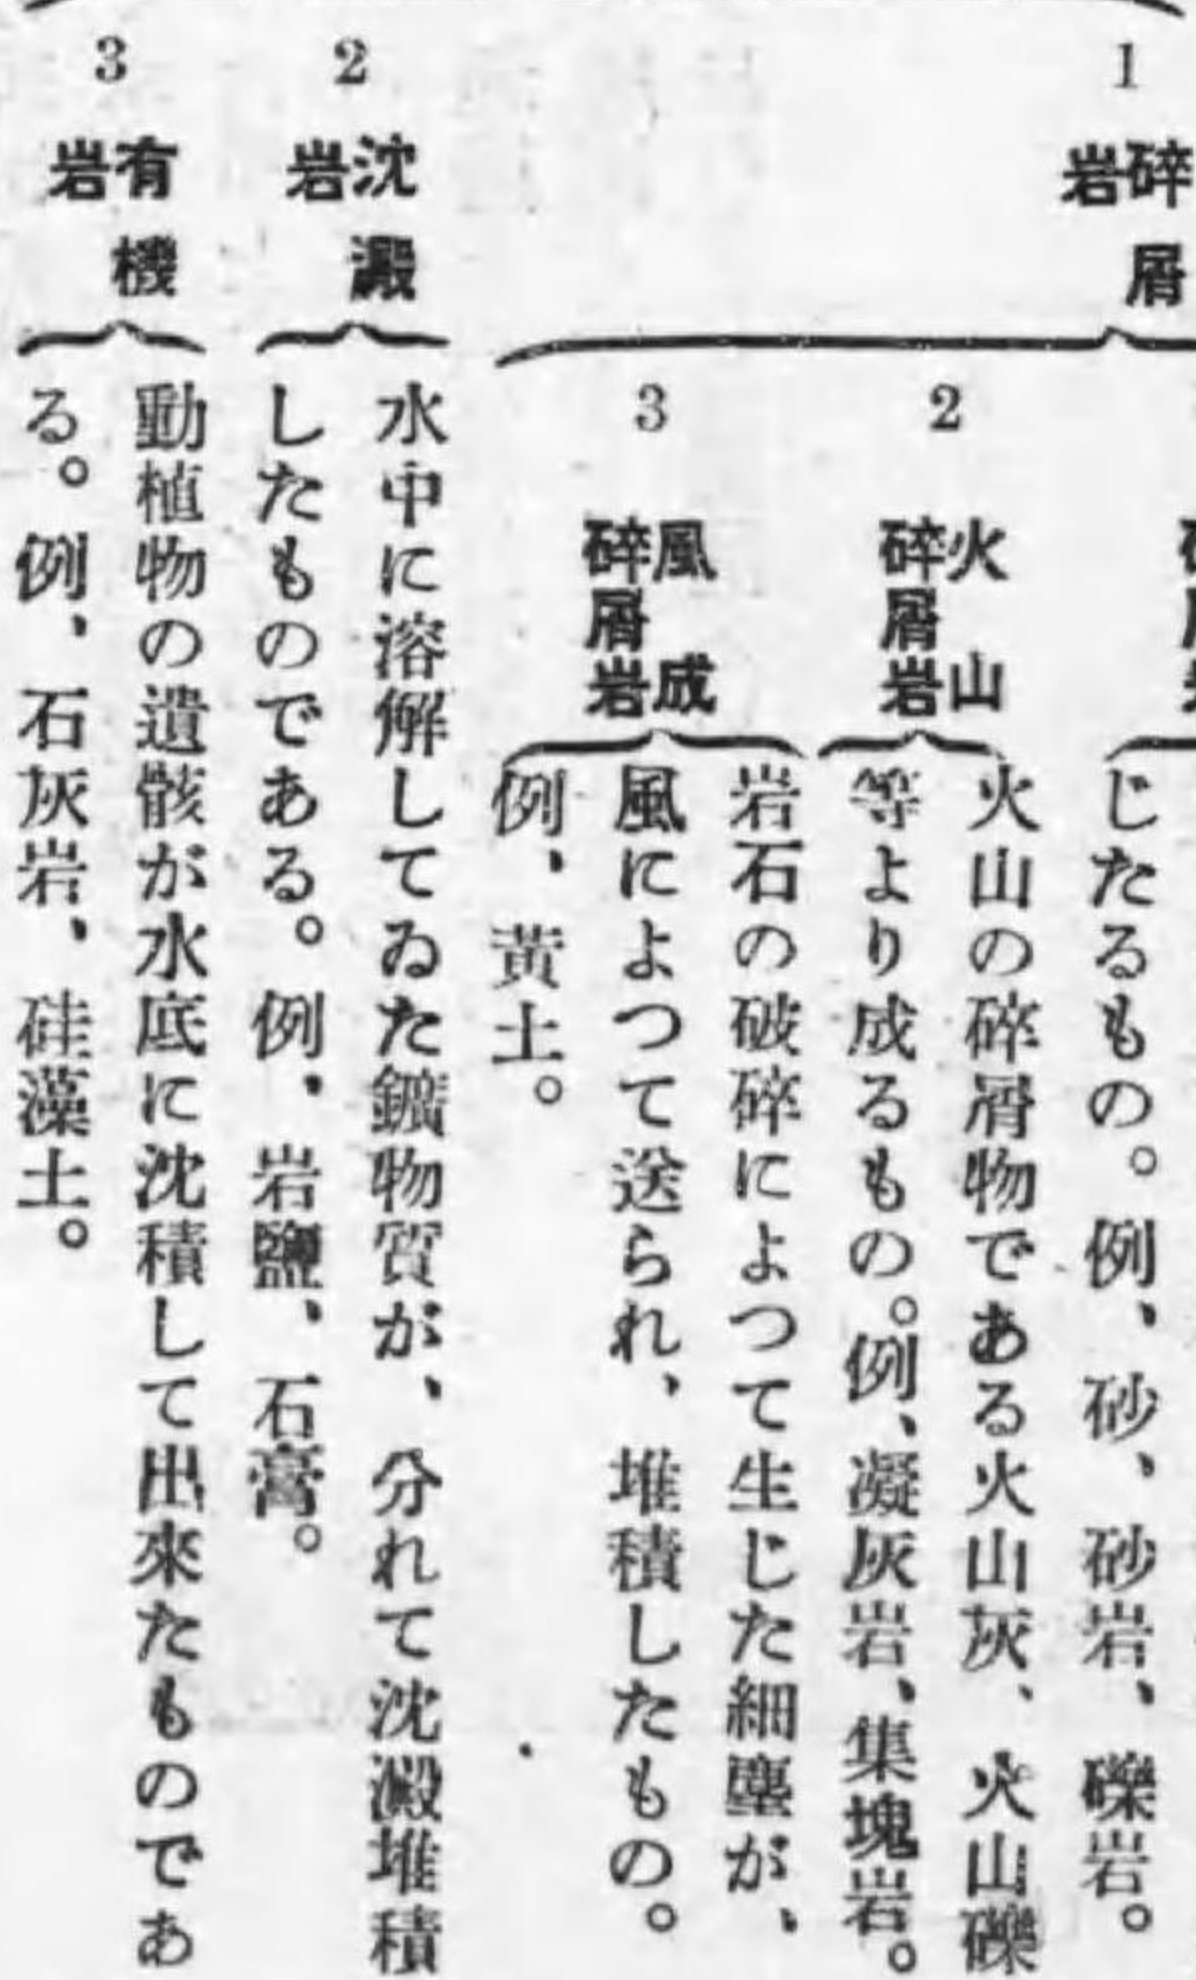 1
碎屑
岩
じたるもの。例、砂、砂岩、礫岩。
2
火山
碎屑岩
火山の碎屑物である火山灰、火山礫
等より成るもの。例、凝灰岩、集塊岩。
3
風成
碎屑岩
岩石の破碎によつて生じた細塵が、
風によつて送られ、堆積したもの。
例、黄土。
2
沈澱
岩
水中に溶解してゐた鑛物質が、分れて沈澱堆積
したものである。例、岩鹽、石膏。
3
有機
岩
動植物の遺骸が水底に沈積して出來たものであ
る。例、石灰岩、硅藻土。